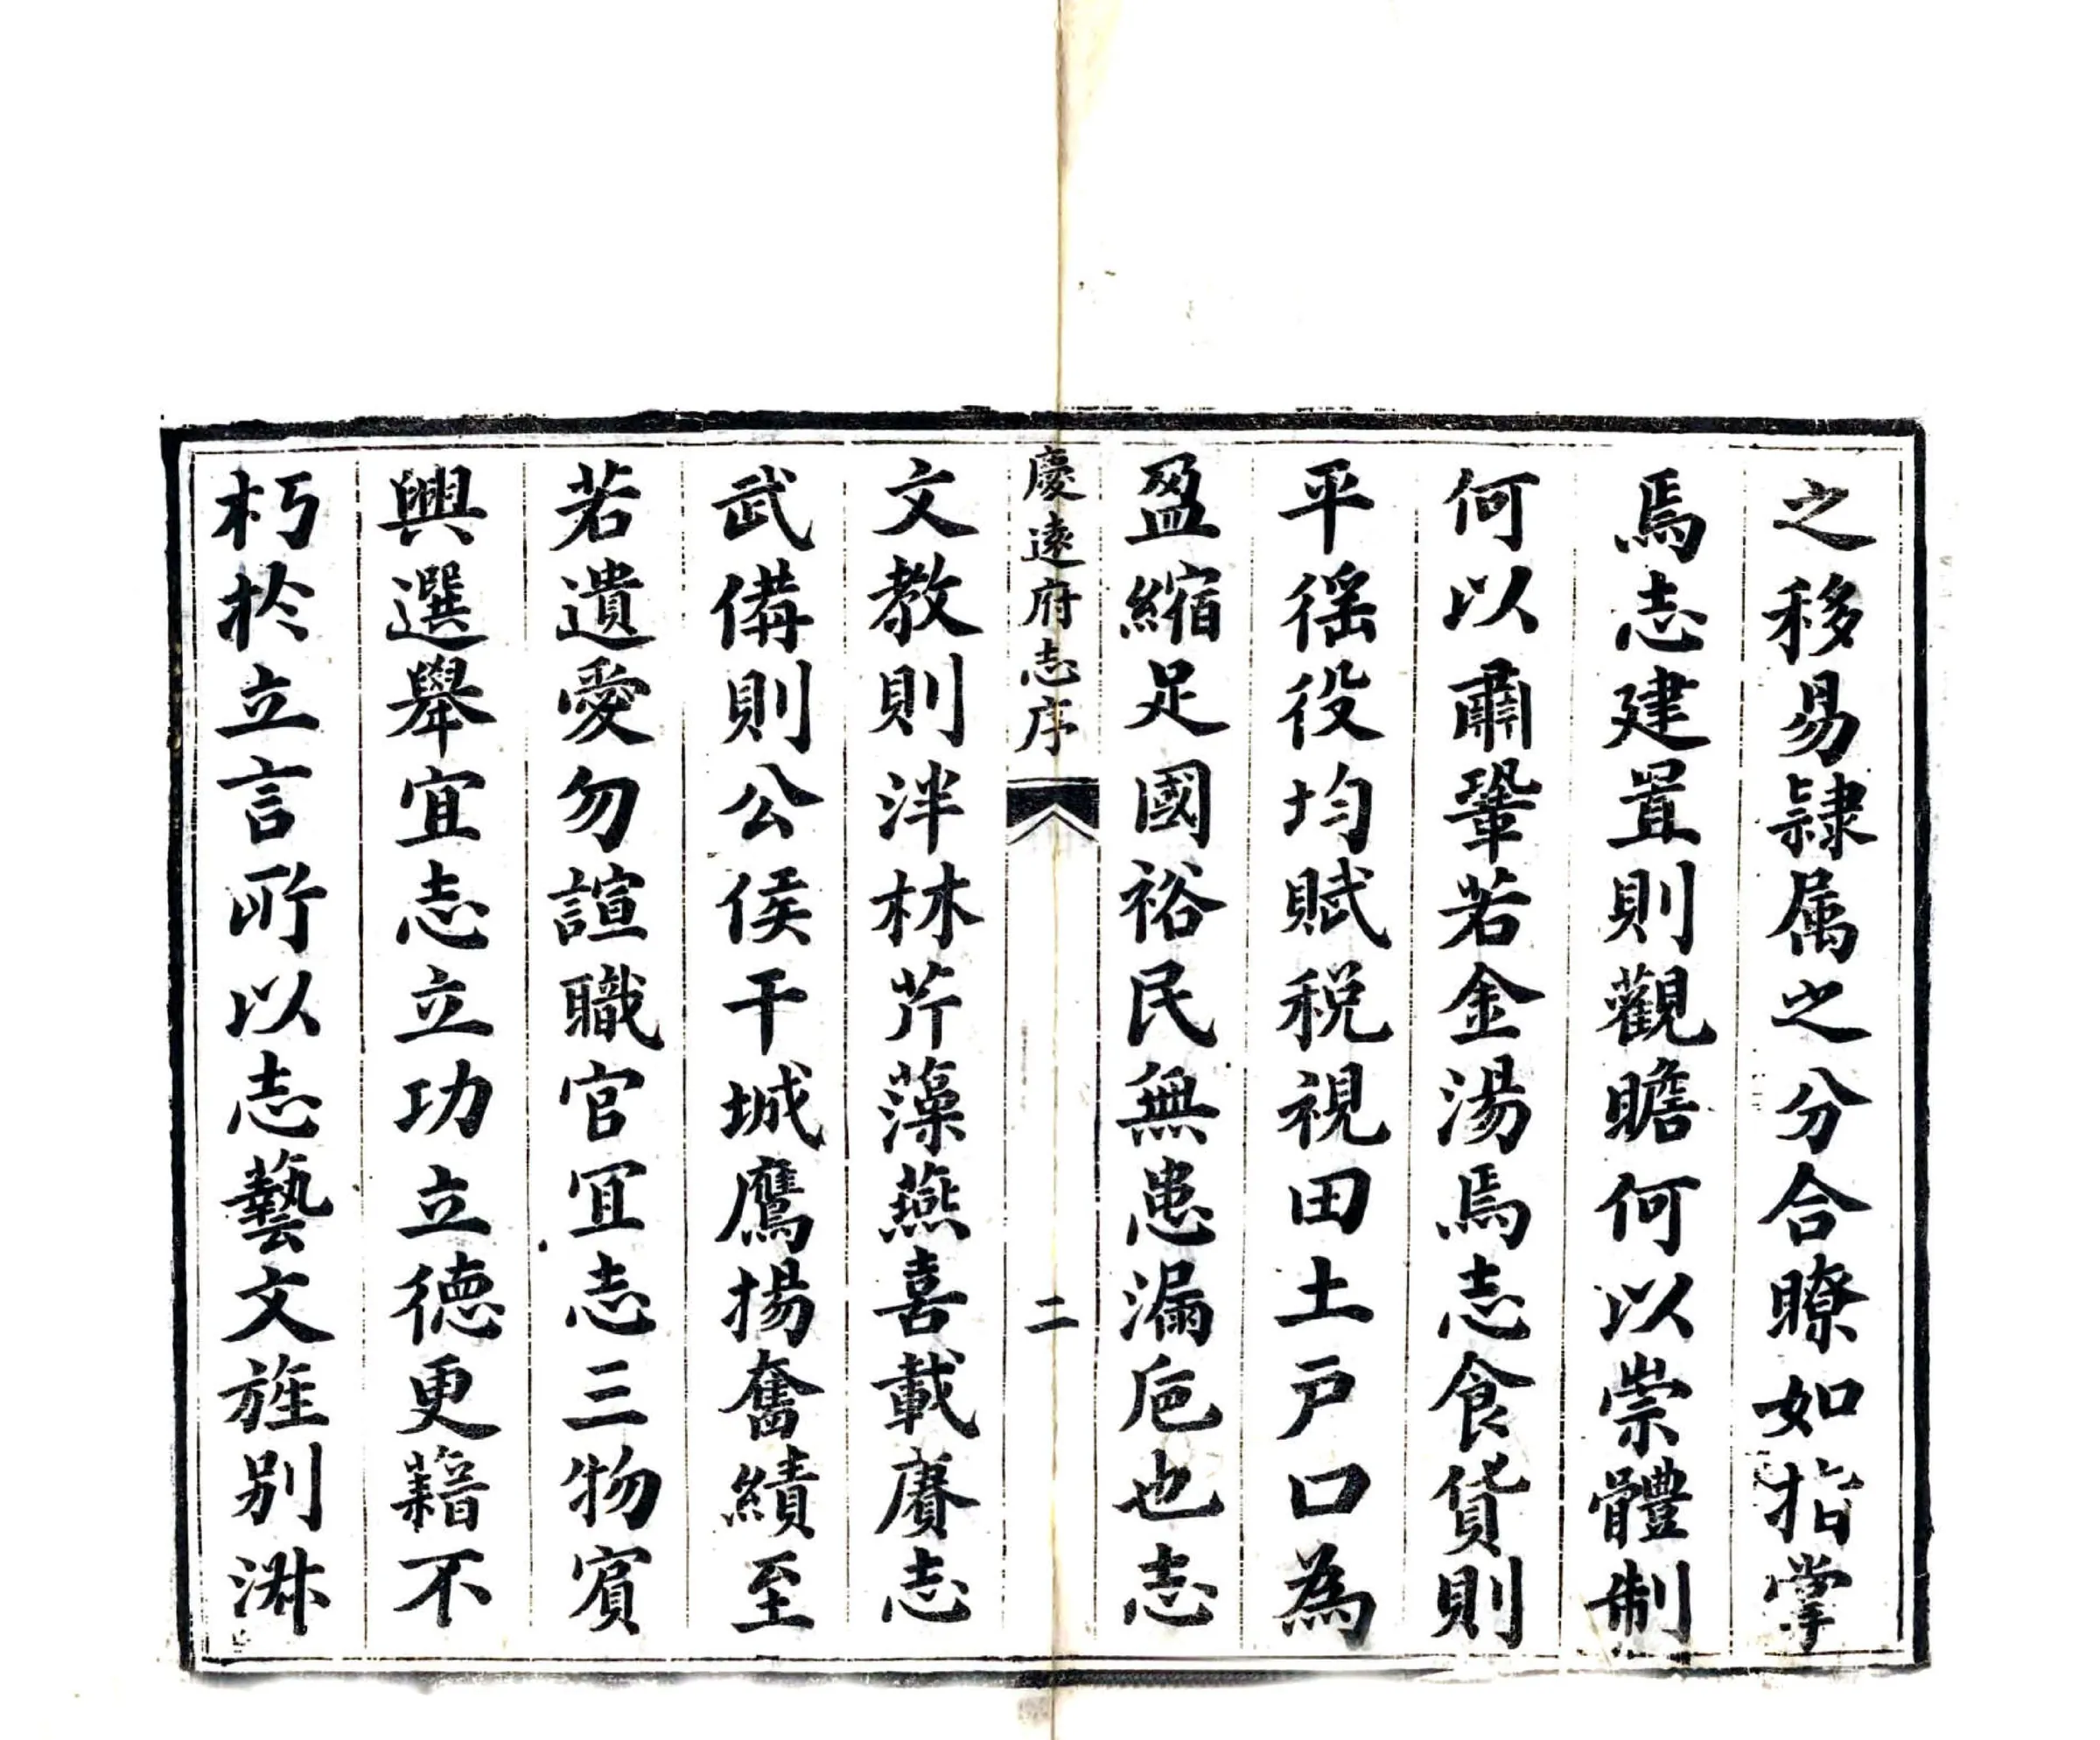 之移易隷属之分合瞭如指掌
焉志建置則觀瞻何以崇體制
何以肅鞏若金湯焉志食貨則
平徭役均賦税視田土戸口為
盈縮足國裕民無患漏巵也志
慶遠府志序
二
文教則泮林芹藻燕喜載賡志
武備則公侯干城鷹揚奮績至
若遺愛勿諠職官冝志三物賔
興選舉宜志立功立德更籍不
朽於立言所以志藝文旌别淋